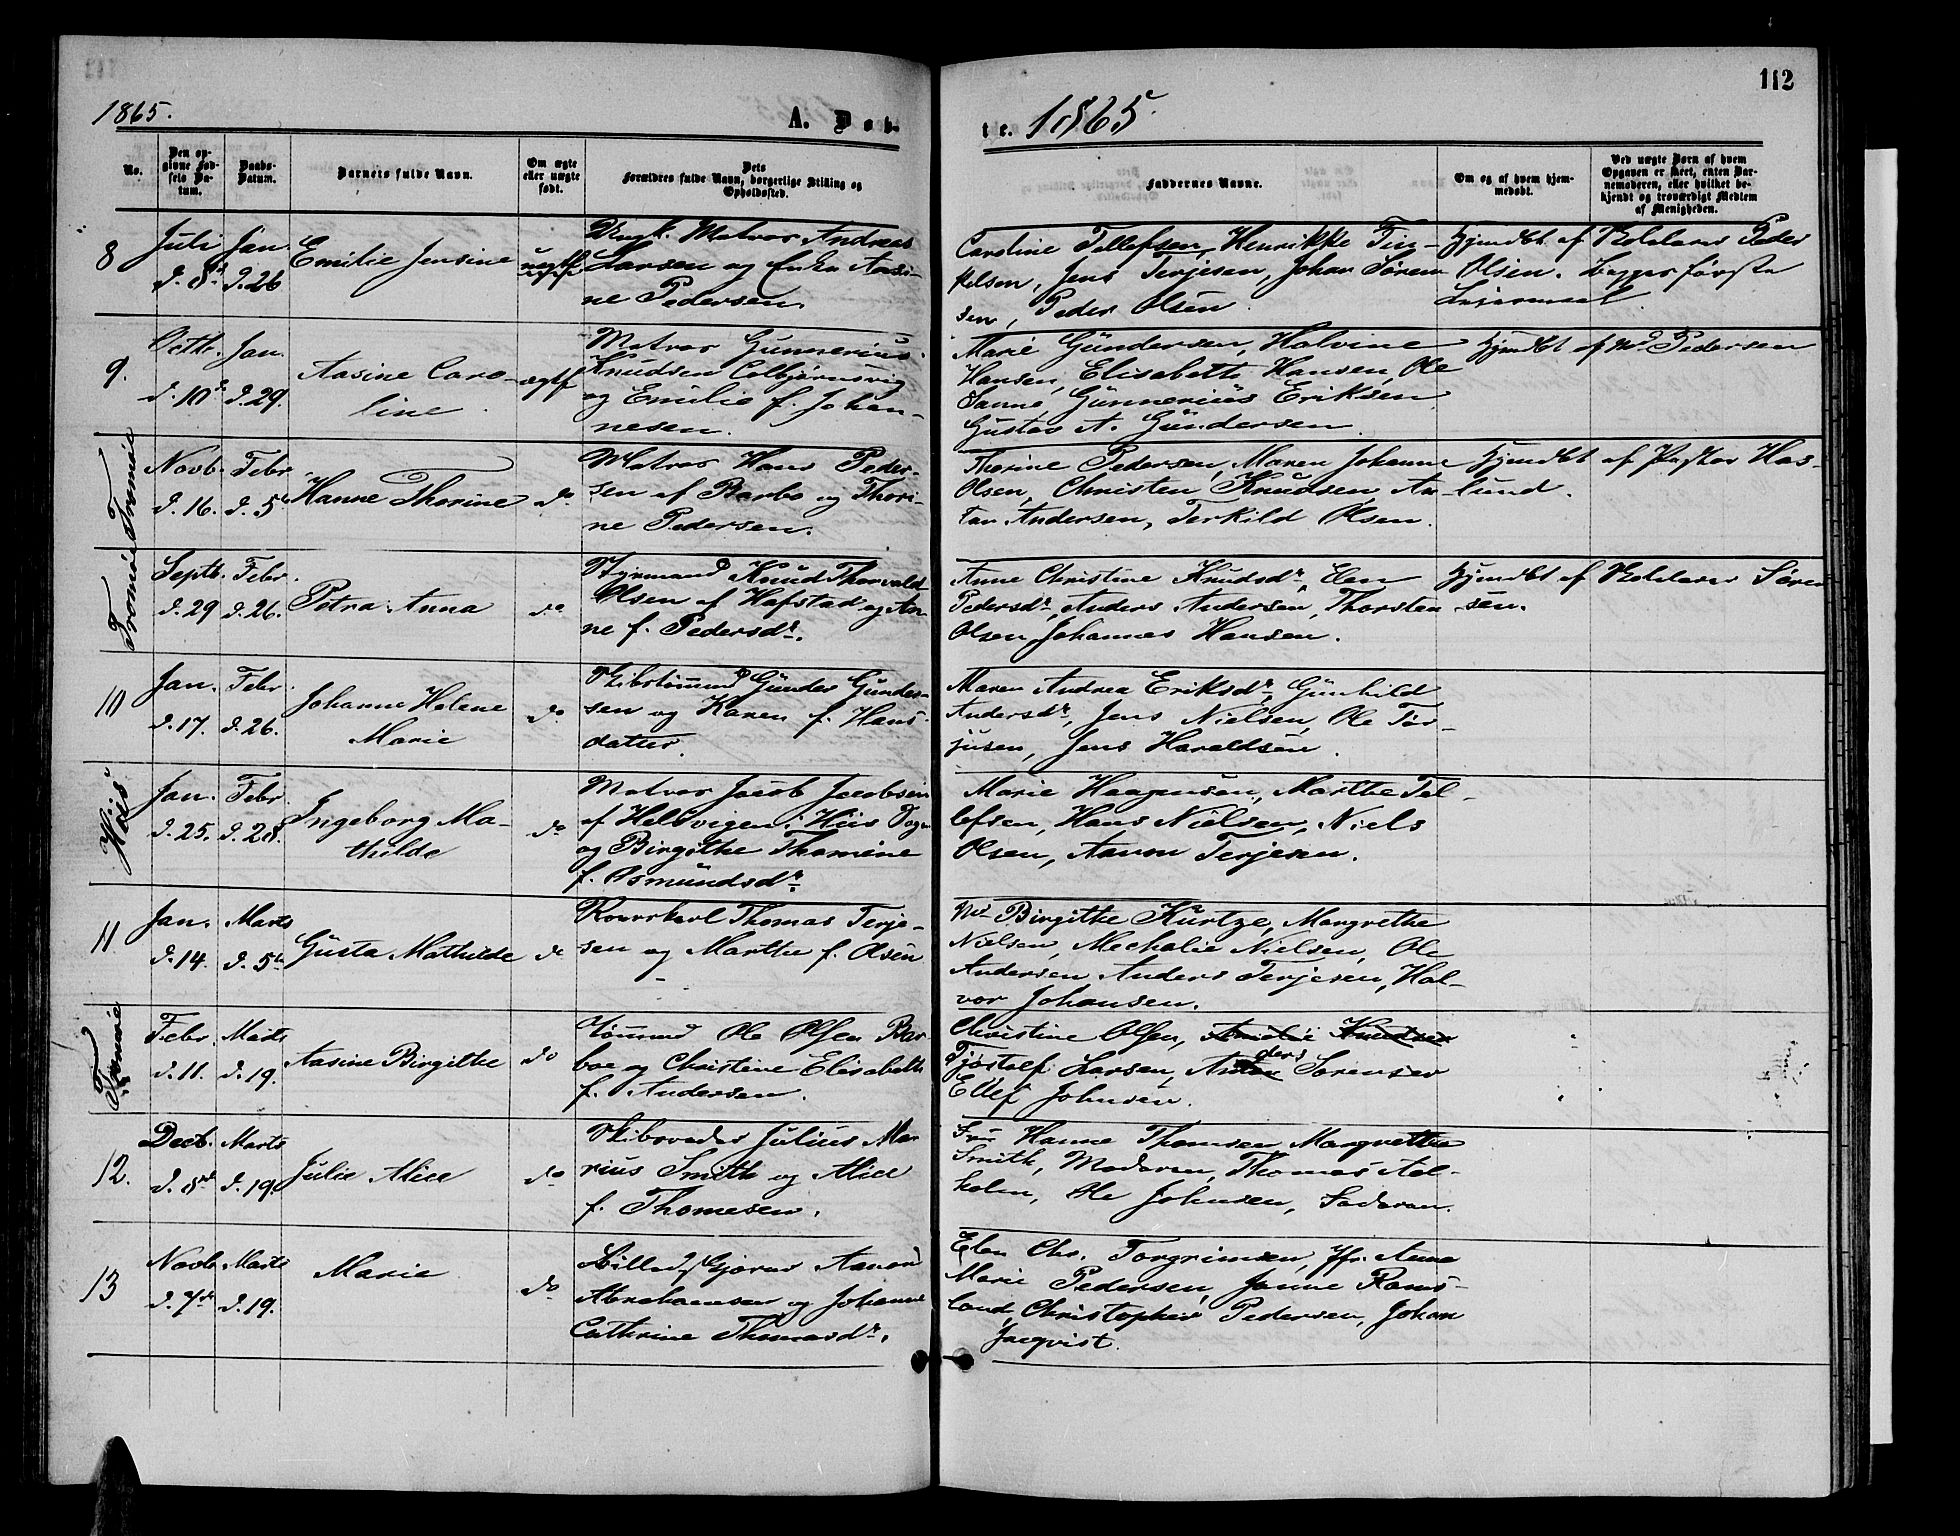 112
1865.
A. Døb-
te. 1865.
No.
Den opgivne Fødsels Datum.
Daabs-Datum.
Barnets fulde Navn.
Om ægte eller uægte født.
Dets Forældres fulde Navn, borgerlige Stilling og Opholdssted.
Faddernes Navne.
Om og af hvem hjemmedøbt.
Ved uægte Børn af hvem Opgaven er skeet, enten Barnemoderen, eller hvilket bekjendt og troværdigt Medlem af Menigheden.
8
Juli d. 8de
Jan. d. 26
Emilie Jensine
uægte
Ungk. Matros Andreas
Larsen og Enke Aasi-
ne Pedersen.
Caroline Tellefsen, Henrikke Tin-
kelsen, Jens Terjesen, Johan Søren-
sen, Peder Olsen.
Hjemdbt. af Kokkelærer Peder
Olsen. begges første
Leiermaal
9.
Octbr. d. 10de
Jan. d. 29.
Aasine Caro-
line
ægte
Matros Gunnerius
Knudsen Colbjørnsvig
og Emilie f. Johan-
nesen.
Marie Gundersen, Halvine
Hansen, Elisabeth Hansen, Ole
Sanne, Gunnerius Eriksen
Gustav A. Gundersen.
Hjemdbt af Md. Pedersen
Tromøe
Novb. d. 16.
Febr d. 5te
Hanne Thorine
do
Matros Hans Peder-
sen af Barbo og Thori-
ne Pedersen.
Therine Pedersen, Maren Johanne
Olsen, Christen Knudsen, An-
ton Andersen, Terkild Olsen.
Hjemdbt af Pastor Has-
lund.
Tromøe
Septb. d. 29
Febr. d. 26.
Petra Anna
do
Styrmand Knud Thorvald
Olsen af Hafstad og An-
ne f. Pedersdr.
Anne Christine Knudsdr, Elen
Pedersdr, Anders Andersen, Thorsten
Olsen, Johannes Hansen.
Hjemdbt af Kokkelærer Søren-
sen.
10
Jan. d. 17.
Febr. d. 26.
Johanne Helene
Marie
do
Skibstømmd Gunder Gunder-
sen og Karen f. Hans-
datter.
Maren Andrea Eriksdr, Gunhild
Andersdr, Jens Nielsen, Ole Tør-
jusen, Jens Haraldsen.
Hiis
Jan. d. 25.
Febr d. 28.
Ingeborg Ma-
thilde
do
Matros Jacob Jacobsen
af Helsvegen i Hiis Sogn
og Birgithe Thomine
f. Osmundsdr.
Marie Haagensen, Marthe Tel-
lefsen, Hans Nielsen, Niels
Olsen, Aanon Terjesen.
11
Jan. d. 14.
Marts d. 5te
Gusta Mathilde
do
Roerskarl Thomas Terje-
sen og Marthe f. Olsen
Md Birgithe Kurtze, Margrethe
Nielsen, Mechalie Nielsen, Ole
Andersen, Anders Terjesen, Hal-
vor Johansen.
Tromøe
Febr d. 11.
Marts d. 19.
Aasine Birgithe
do
Tømmd Ole Olsen Bar-
boe og Christine Elisabeth
f. Andersen.
Christine Olsen,
Tjøstolf Larsen, Anders Sørensen
Ellef Johnsen.
12.
Decb. d. 8de
Marts d. 19
Julie Alice
do
Skibsreder Julius Ma-
rius Smith og Alice
f. Thomesen.
Fru Hanne Thomsen, Margrethe
Smith, Moderen, Thomas Aal-
holm, Ole Johnsen, Faderen.
13
Novb. d. 7de
Marts d. 19.
Marie
do
Aanon
Abrahamsen og Johanne
Cathrine Thomasdr.
Elen Chr. Torgrimsen, Jfr. Anne
Marie Pedersen, Janne Rams-
land, Christopher Pedersen, Johan
Jaqvist.